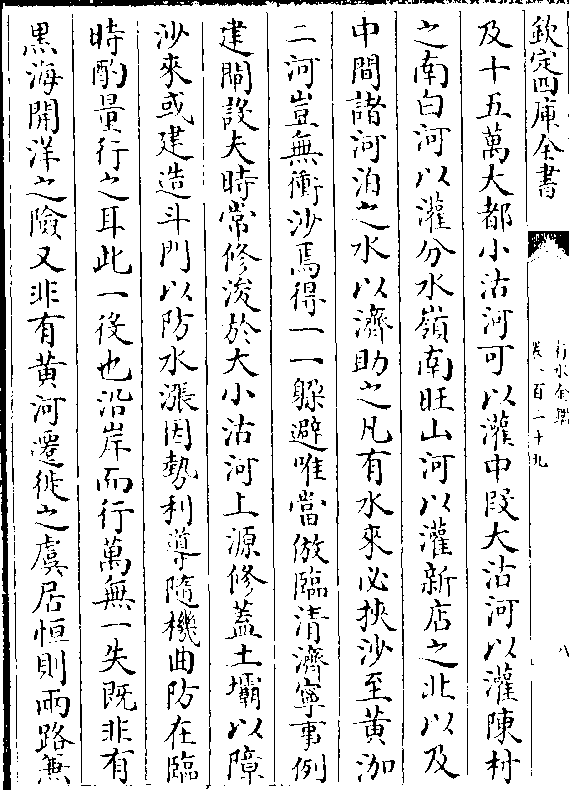 欽定四庫全書
行水金鑑
卷一百二十九
八
及十五萬大都小沽河可以灌中段大沽河以灌陳村
之南白河以灌分水嶺南旺山河以灌新店之北以及
中間諸河泊之水以濟助之凡有水來必挾沙至黄泇
二河豈無衝沙焉得一一躲避唯當倣臨清濟寧事例
建閘設夫時常修浚於大小沽河上源修蓋土壩以障
沙來或建造斗門以防水漲因勢利導隨機曲防在臨
時酌量行之耳此一役也沿岸而行萬無一失既非有
黒海開洋之險又非有黄河遷徙之虞居恒則兩路無